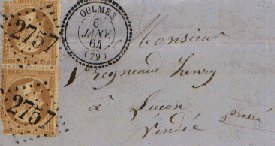 OULMES
6
JANV.
64
(79)
2757
2757
Monsieur
Henry
à Luçon
Vendée